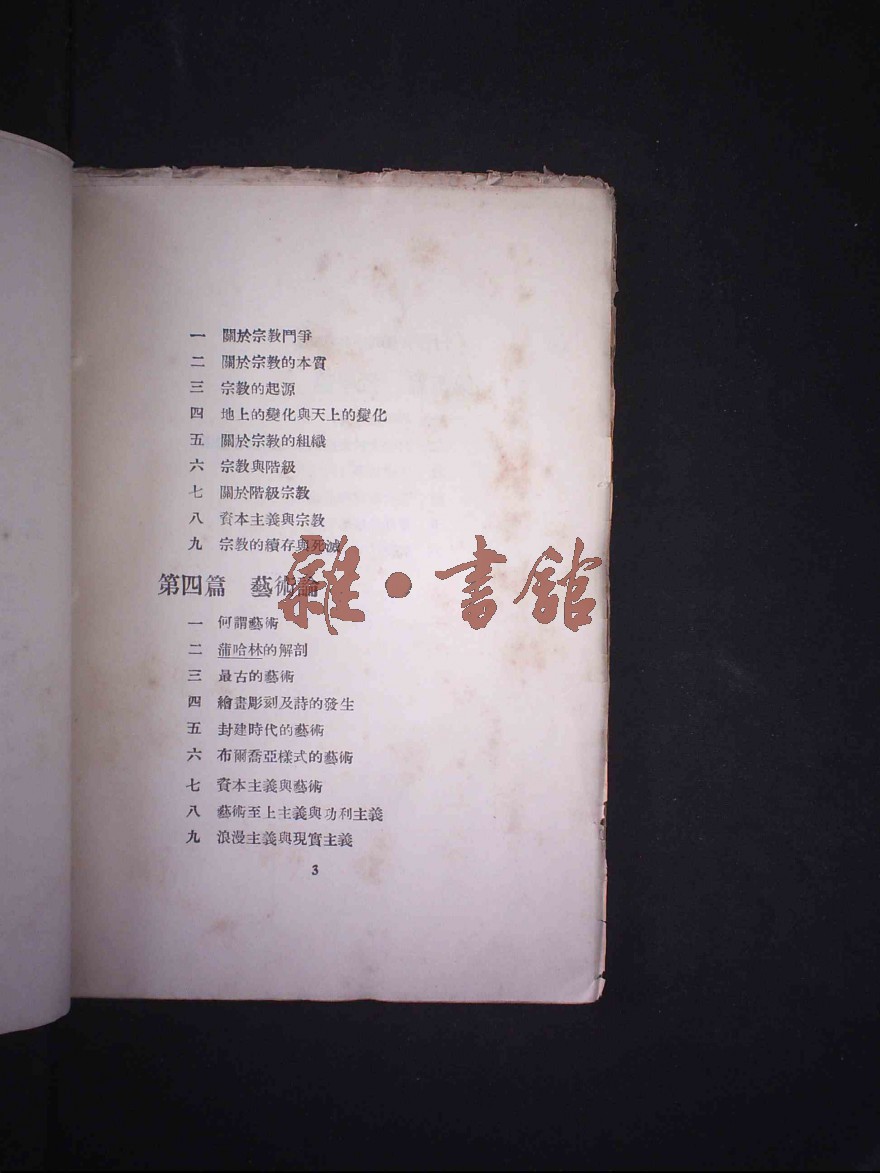 一 關於宗教鬥爭
二 關於宗教的本質
三 宗教的起源
四 地上的變化與天上的變化
五 關於宗教的組織
六 宗教與階級
七 關於階級宗教
八 資本主義與宗教
九 宗教的續存與死滅
第四篇 藝術論
雜•書館
一 何謂藝術
二 蒲哈林的解剖
三 最古的藝術
四 繪畫彫刻及詩的發生
五 封建時代的藝術
六 布爾喬亞樣式的藝術
七 資本主義與藝術
八 藝術至上主義與功利主義
九 浪漫主義與現實主義
3